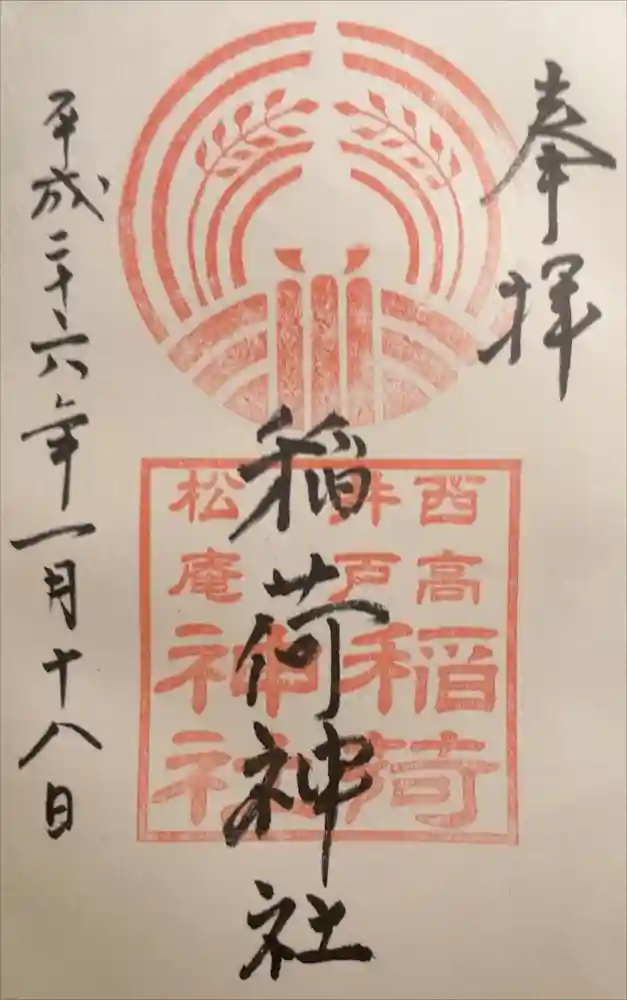 奉拝
稲荷神社
西高
井戸
松庵
稲荷
神社
平成二十六年一月十八日